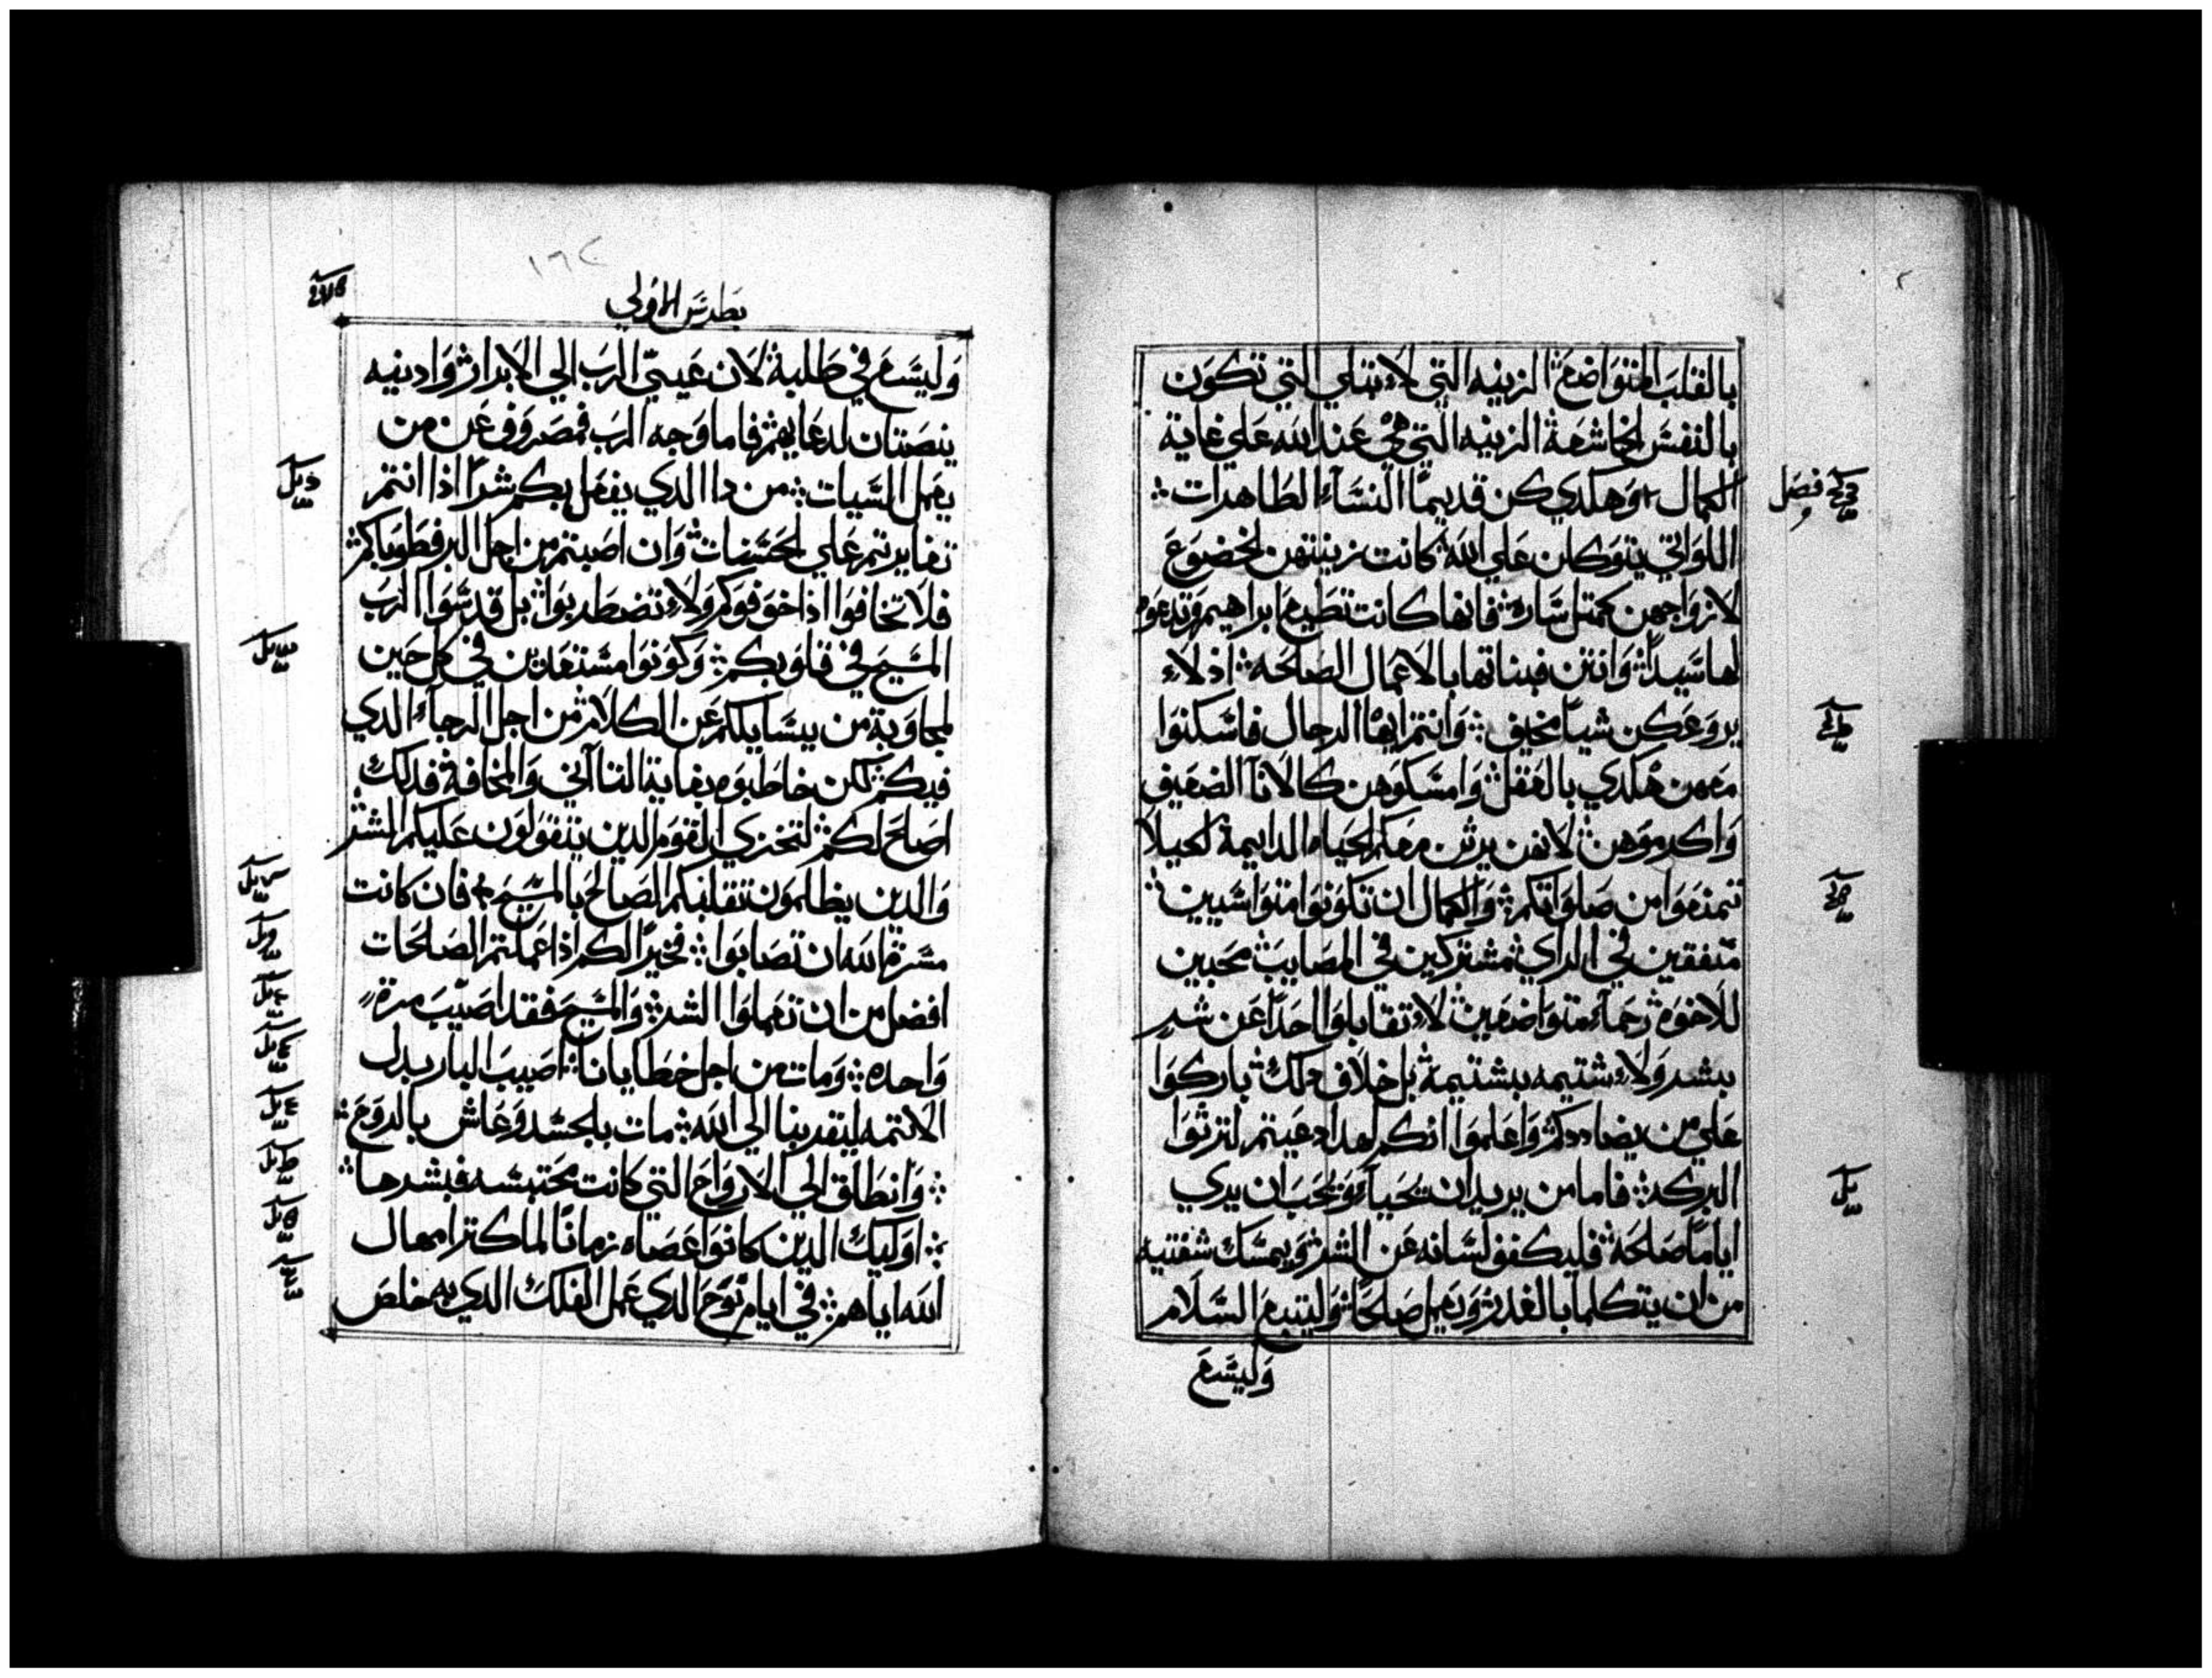 بالقلب المتواضع الزينه التي لا تبلي التي تكون
بالنفس الخاشعة الزينه التي هي عند الله علي غاية
الكمال وهكدي كن قديمًا النسآء الطاهرات
اللواتي يتوكلن علي الله كانت زينتهن الخضوع
لازواجهن كمتل ساره فانها كانت تطيع ابراهيم وتدعوه
لها سيدًا وانتن فبناتها بالاعمال الصالحه اذ لا
يروعكن شيا مخيف وانتم ايها الرجال فاسكنوا
معهن هكدي بالعقل وامسكوهن كالانآ الضعيف
واكرموهن لانهن يرثن معكم الحياه الدايمة لكيلا
تمنعوا من صلواتكم والكمال ان تكونوا متواسيين
متفقين في الراي مشتركين في المصايب محبين
للاخوه رحمآء متواضعين لا تقابلوا احدًا عن شر
بشر ولا شتيمه بشتيمة بل خلاف دلك باركوا
علي من يضاددكم واعلموا انكم لهدا دعيتم لترثوا
البركه فاما من يريد ان يحيآ ويحب ان يري
ايامًا صالحه فليكفف لسانه عن الشر ويمسك شفتيه
من ان يتكلما بالغدر ويعمل صالحًا وليتبع السلام
وليسع
فصل
بطرس الاولي
١٦٢
وليسع في طلبة لان عيني الرب الي الابرار وادنيه
ينصتان لدعايهم فاما وجه الرب فمصروف عن من
يعمل السيات من دا الدي يفعل بكم شرًا اذا انتم
تغايرتم علي الحسنات وان اصبتم من اجل البر فطوباكم
فلا تخافوا اذا خوفوكم ولا تضطربوا بل قدسوا الرب
المسيح في قلوبكم وكونوا مستعدين في كل حين
لمجاوبة من يسايلكم عن الكلام من اجل الرجآء الدي
فيكم لكن خاطبوه بغاية التاآني والمخافة فدلك
اصلح لكم لتخزي القوم الدين يتقولون عليكم الشر
والدين يظلمون تقلبكم الصالح بالمسيح فان كانت
مسرة الله ان تصابوا فخيرًا لكم اذا عملتم الصالحات
افضل من ان تعملوا الشر والمسيح فقد اصيب مرة
واحده ومات من اجل خطايانا اصيب البار بدل
الاتمه ليقربنا الي الله مات بالجسد وعاش بالروح
وانطلق الي الارواح التي كانت محتبسه فبشرها
اوليك الدين كانوا عصاه زمانًا لما كتر امهال
الله اياهم في ايام نوح الدي عمل الفلك الدي به خلص